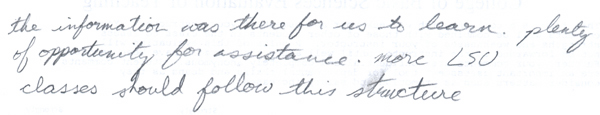 the information was there for us to learn. plenty
of opportunity for assistance. more LSU
classes should follow this structure